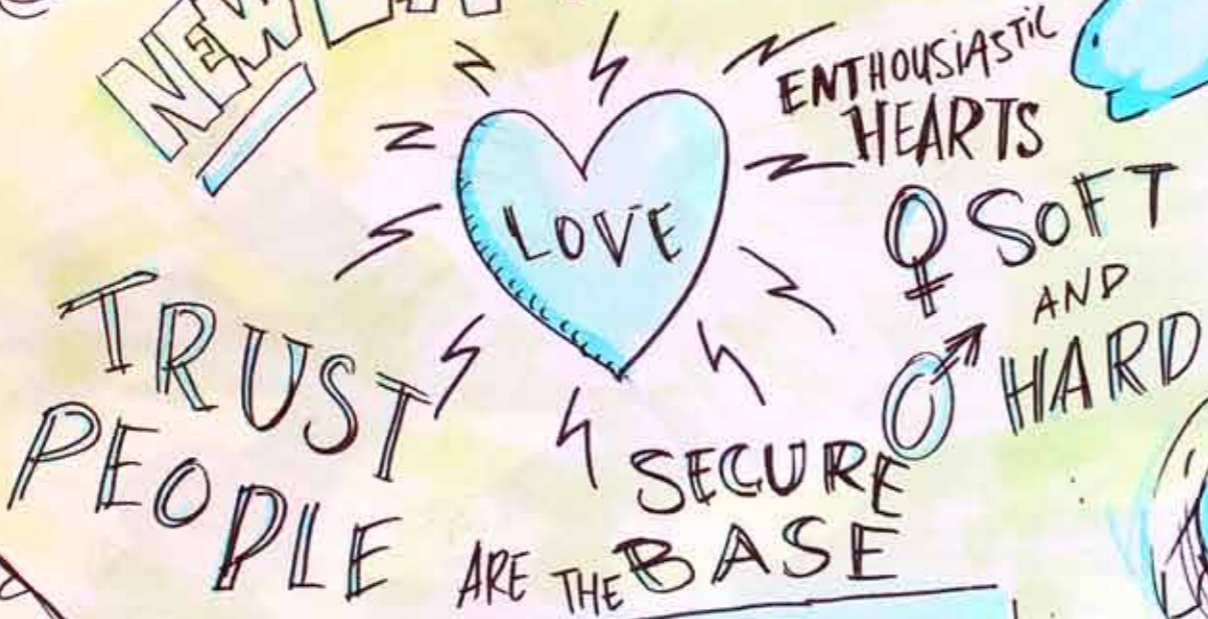 NEW
LOVE
ENTHOUSIASTIC
HEARTS
SOFT
AND
HARD
TRUST
PEOPLE
ARE THE
SECURE
BASE